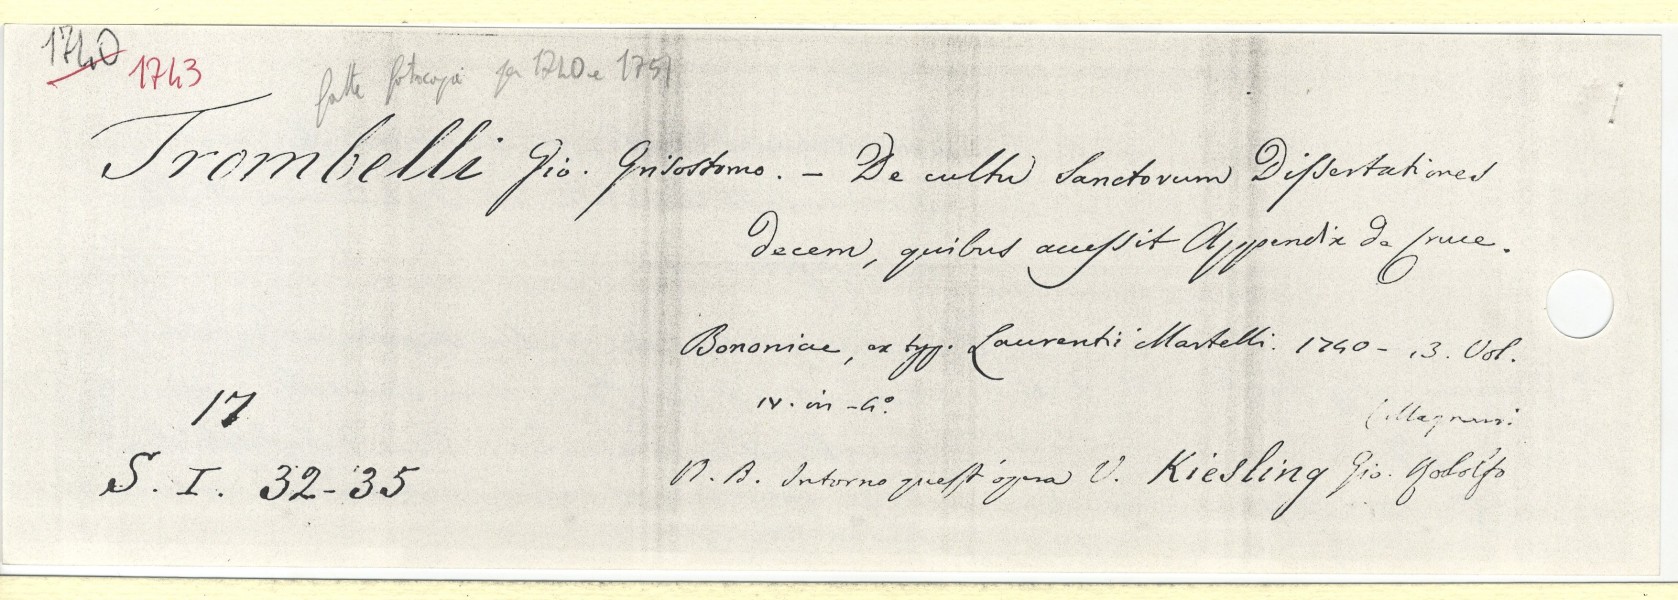 1740 1743 fatte fotocopie per 1740 e 1751
Trombelli Gio. Grisostomo. – De cultu Sanctorum Dissertationes
decem, quibus accessit Appendix de Cruce.
Bononiae, ex typ. Laurentii Martelli. 1740 - 43. Vol.
IV. in - 4°.
17 (Magnani
S. I. 32-35 N. B. Intorno quest'opera V. Kiesling Gio. Rodolfo